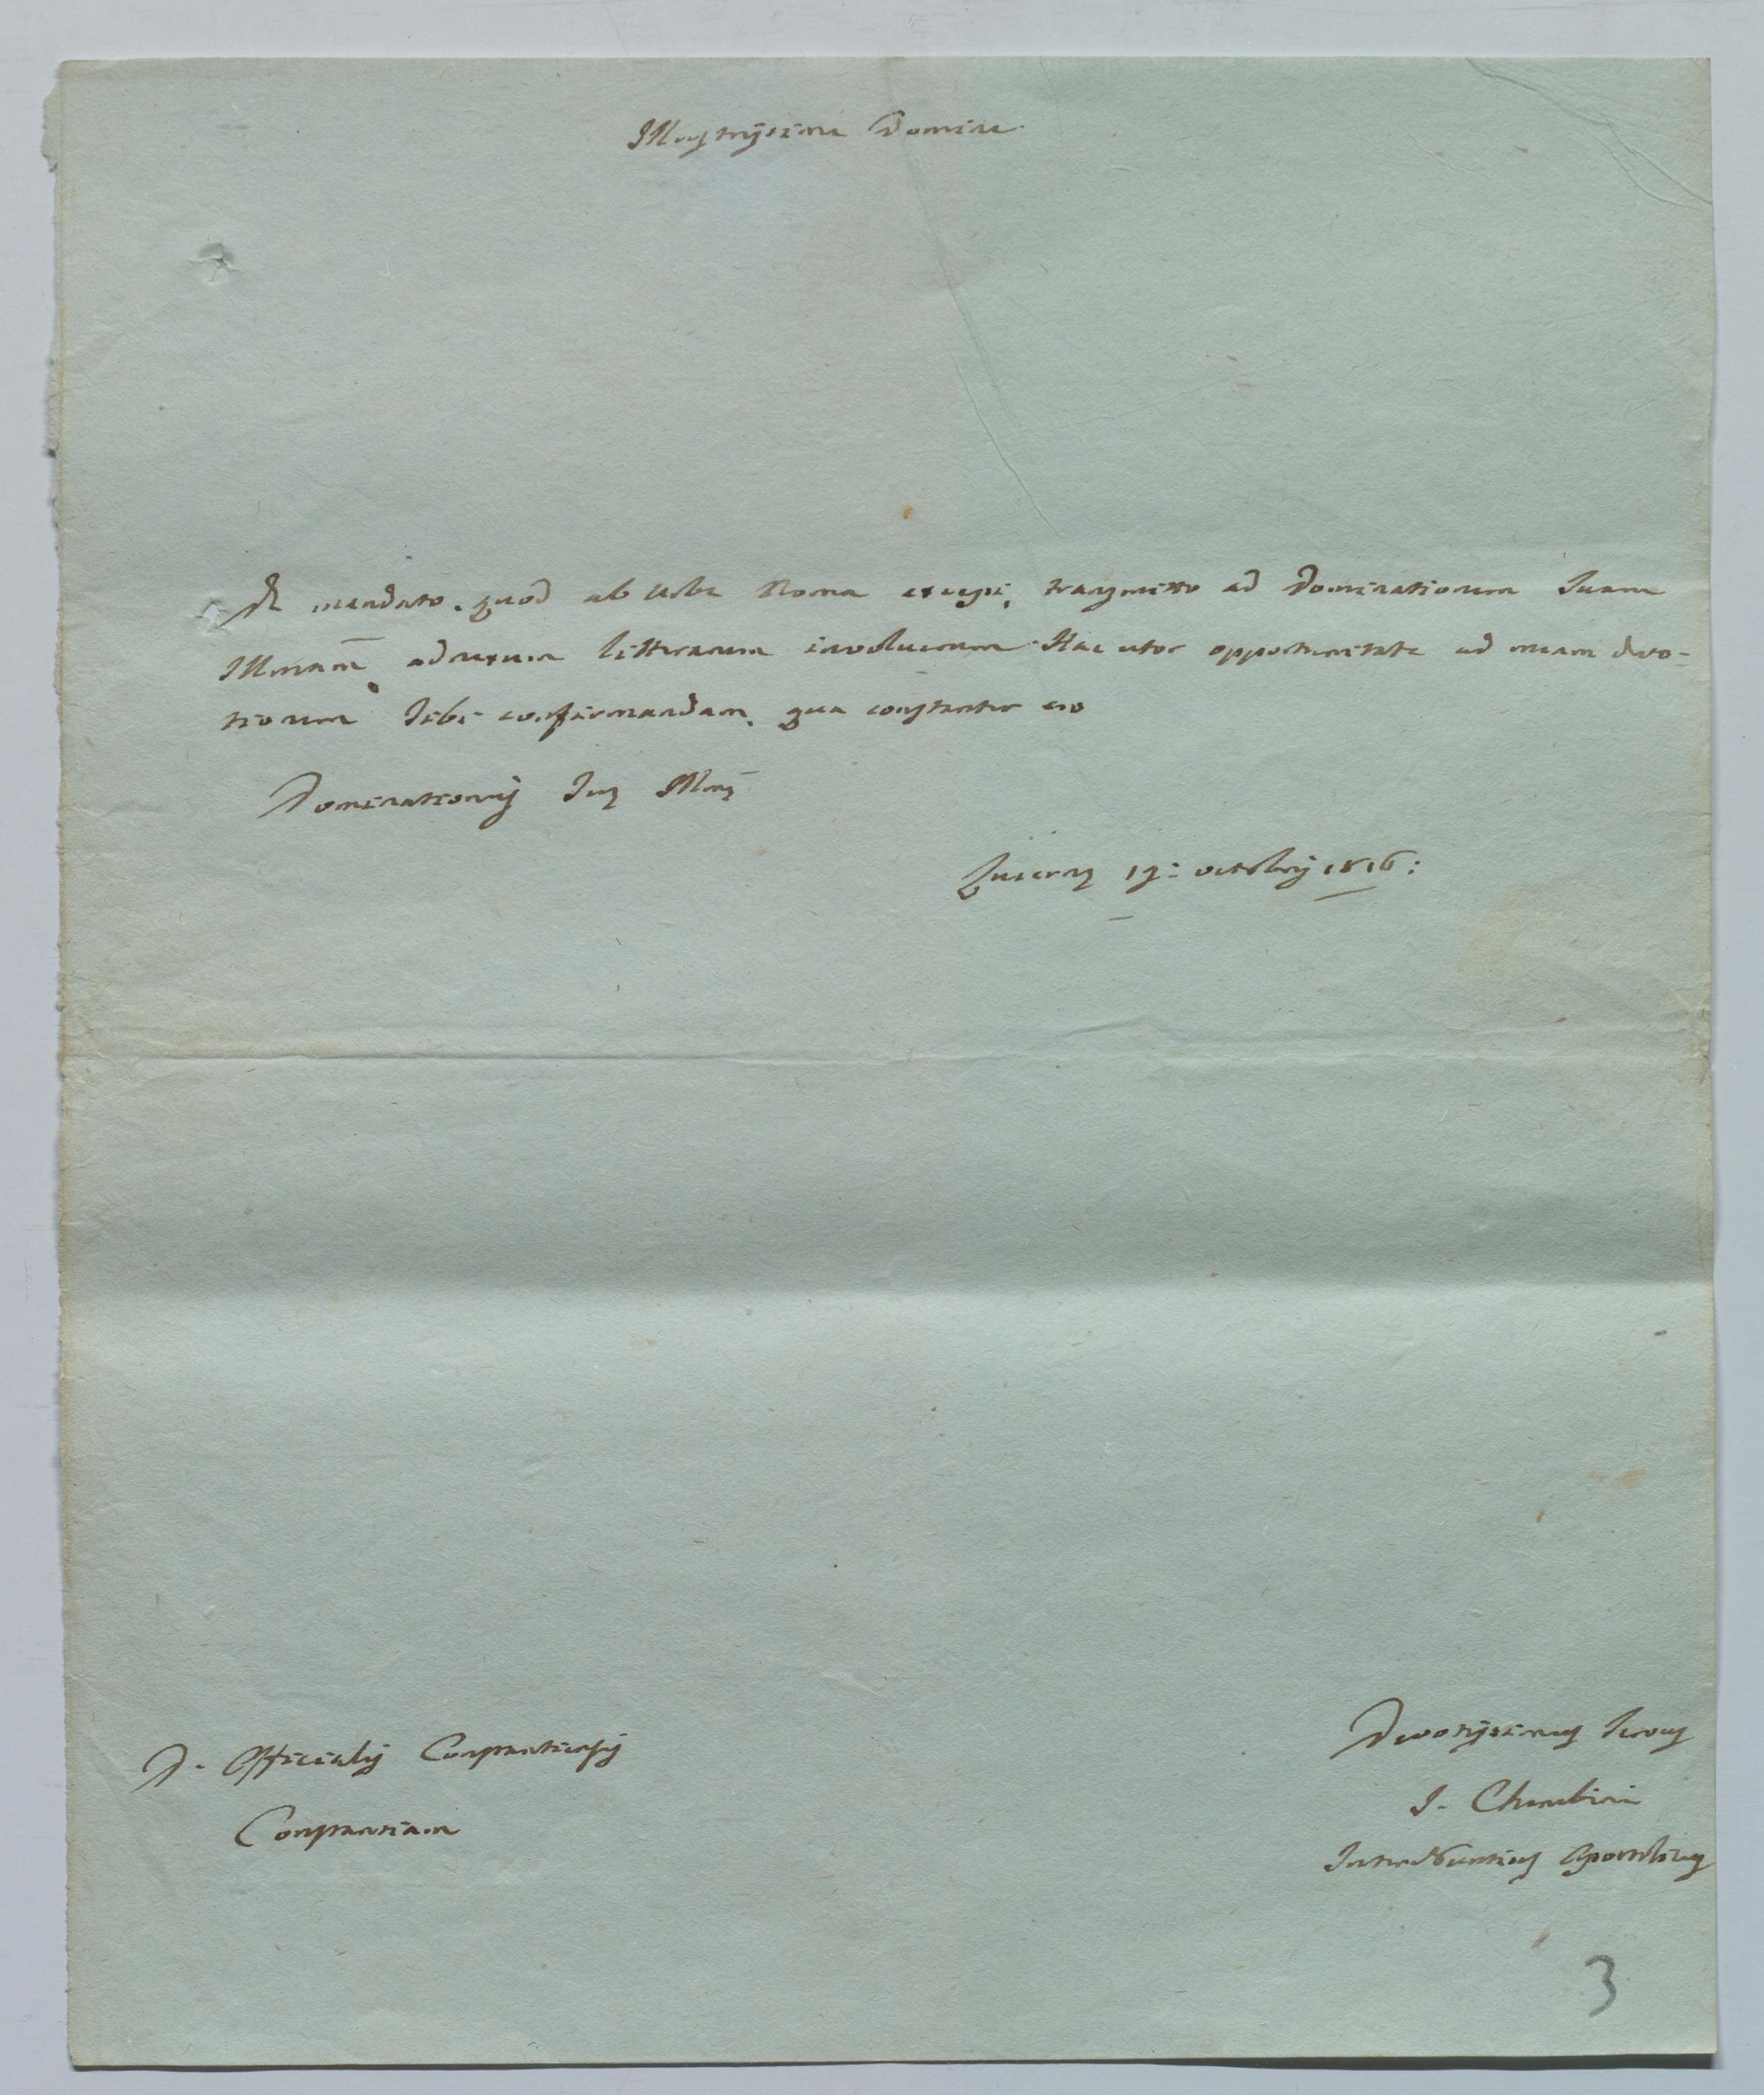 Illustrissime Domine.
De mandato, quod ab Urbe Roma excepi, transmitto ad Dominationem Suam
Illmam adnexum litterarum involucrum. Hac utor opportunitate ad meam devo=
tionem Sibi confirmandam, qua constanter ero
Dominationis Suæ Illmæ
Lucernæ 19: octobris 1816:
D. Officialis Constantiensis
Constantiam
Devotissimus Servus
J. Cherubini
InterNuntius Apostolicus
3